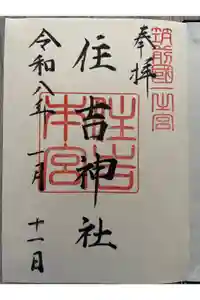 筑前國一之宮
奉拝
住吉神社
住吉
本宮
令和八年一月十一日